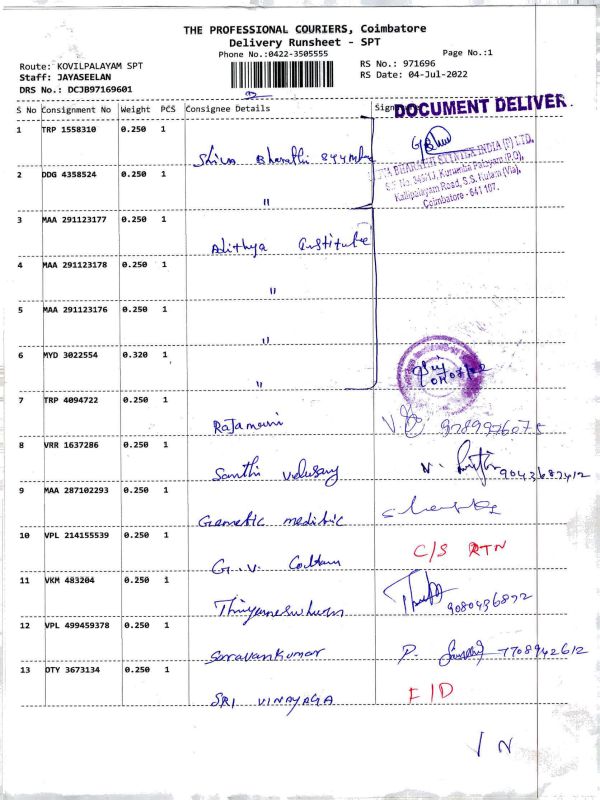 THE PROFESSIONAL COURIERS, Coimbatore
Delivery Runsheet - SPT
Phone No.:0422-3505555
Page No.:1
Route: KOVILPALAYAM SPT
RS No.: 971696
Staff: JAYASEELAN
RS Date: 04-Jul-2022
DRS No.: DCJB97169601
S No Consignment No Weight PCS Consignee Details Sign
DOCUMENT DELIVER
1 TRP 1558310 0.250 1
Shiva Bharathi
BHARATHI INDIA (P) LTD.
S.F No. Kurumba Palayam (P.O),
Kalipalayam Road, S.S. Kulam (Via),
Coimbatore - 641 107.
2 DDG 4358524 0.250 1
"
3 MAA 291123177 0.250 1
Adithya Institute
4 MAA 291123178 0.250 1
"
5 MAA 291123176 0.250 1
"
6 MYD 3022554 0.320 1
"
7 TRP 4094722 0.250 1
Rajamani
8 VRR 1637286 0.250 1
Santhi Velusamy V. 9043687412
9 MAA 287102293 0.250 1
Genetic
10 VPL 214155539 0.250 1
G.V. C/S RTN
11 VKM 483204 0.250 1
9080436872
12 VPL 499459378 0.250 1
Saravankumar P. 7708942612
13 OTY 3673134 0.250 1
SRI VINAYAGA F/D
/ N